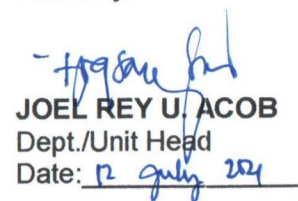 JOEL REY U. ACOB
Dept./Unit Head
Date: 12 July 2021